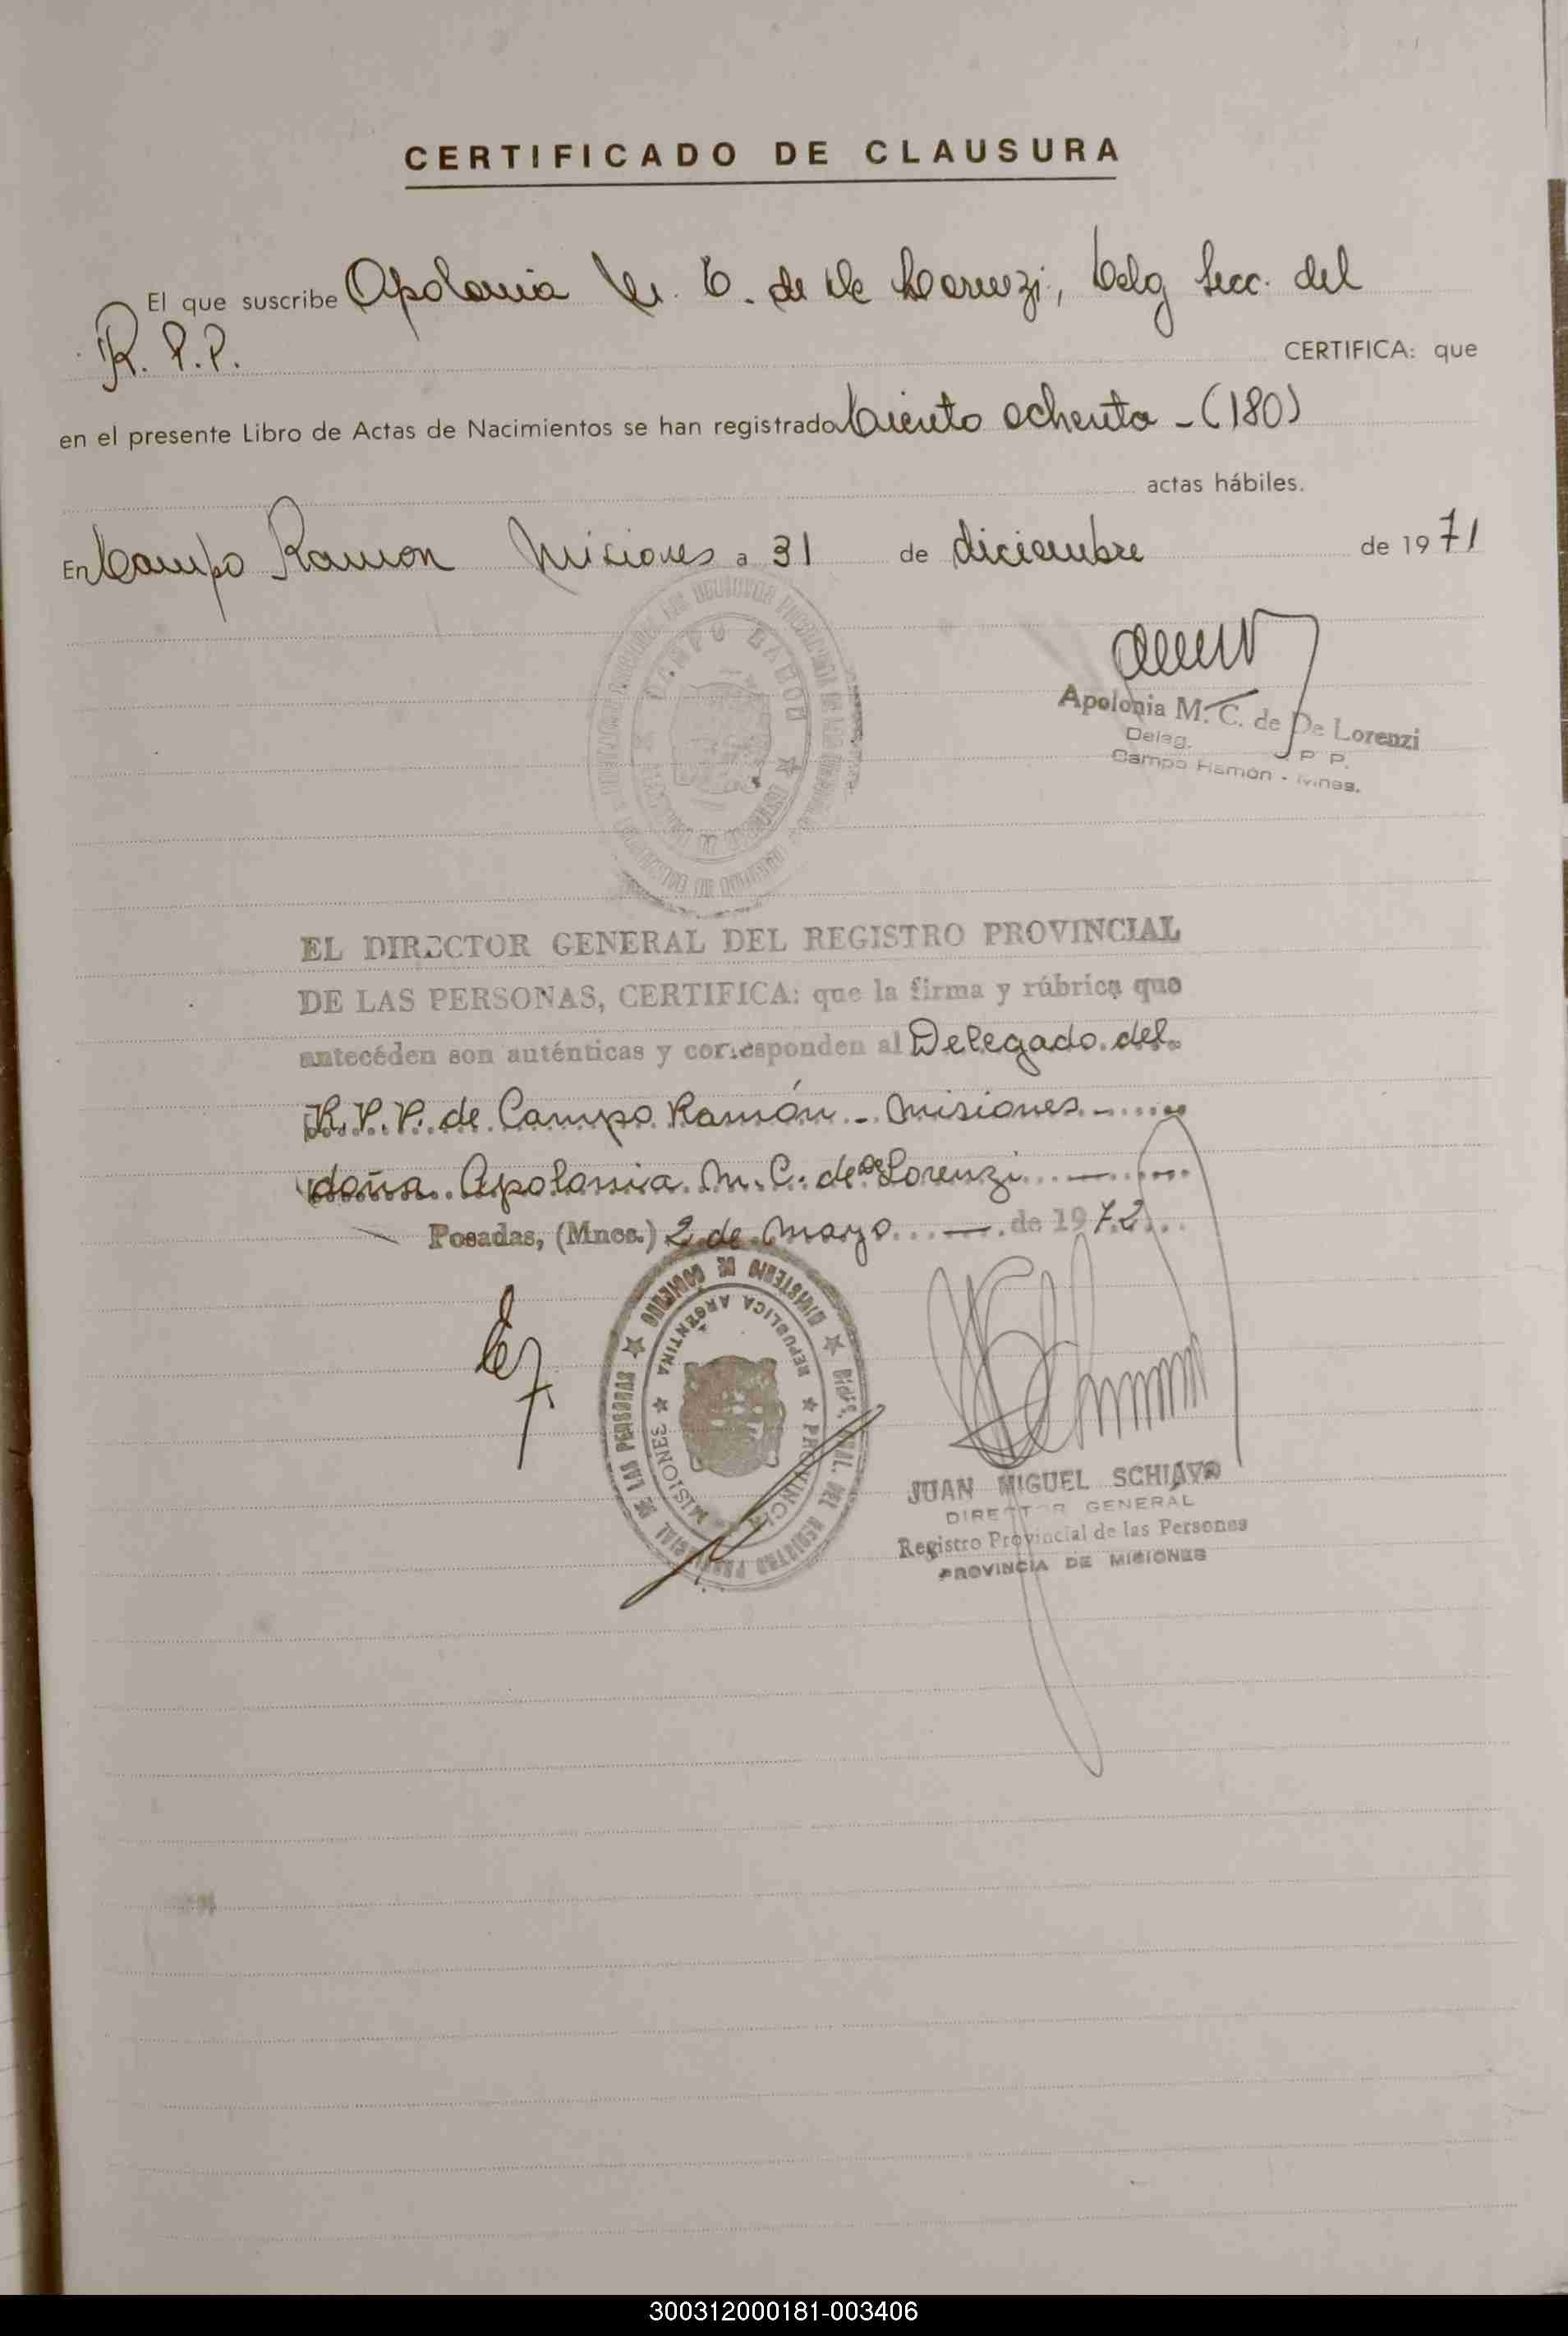 CERTIFICADO DE CLAUSURA
El que suscribe Apolonia M. C. de De Lorenzi, Delg Secc. del
R. P. P. CERTIFICA: que
en el presente Libro de Actas de Nacimientos se han registrado Ciento ochenta - (180)
actas hábiles.
En Campo Ramon Misiones a 31 de diciembre de 1971
CAMPO RAMON
Apolonia M. C. de De Lorenzi
Deleg. P. P.
Campo Ramón - Mnes.
EL DIRECTOR GENERAL DEL REGISTRO PROVINCIAL
DE LAS PERSONAS, CERTIFICA: que la firma y rúbrica que
antecéden son auténticas y corresponden al Delegado del
R. P. P. de Campo Ramón - Misiones -
doña Apolonia M. C. de De Lorenzi —
Posadas, (Mnes.) 2 de Mayo — de 1972
MINISTERIO DE GOBIERNO ★ DIREC. GRAL. DEL REGISTRO PROVINCIAL DE LAS PERSONAS ★
REPUBLICA ARGENTINA ★ PROVINCIA MISIONES ★
JUAN MIGUEL SCHIAVO
DIRECTOR GENERAL
Registro Provincial de las Personas
PROVINCIA DE MISIONES
300312000181-003406